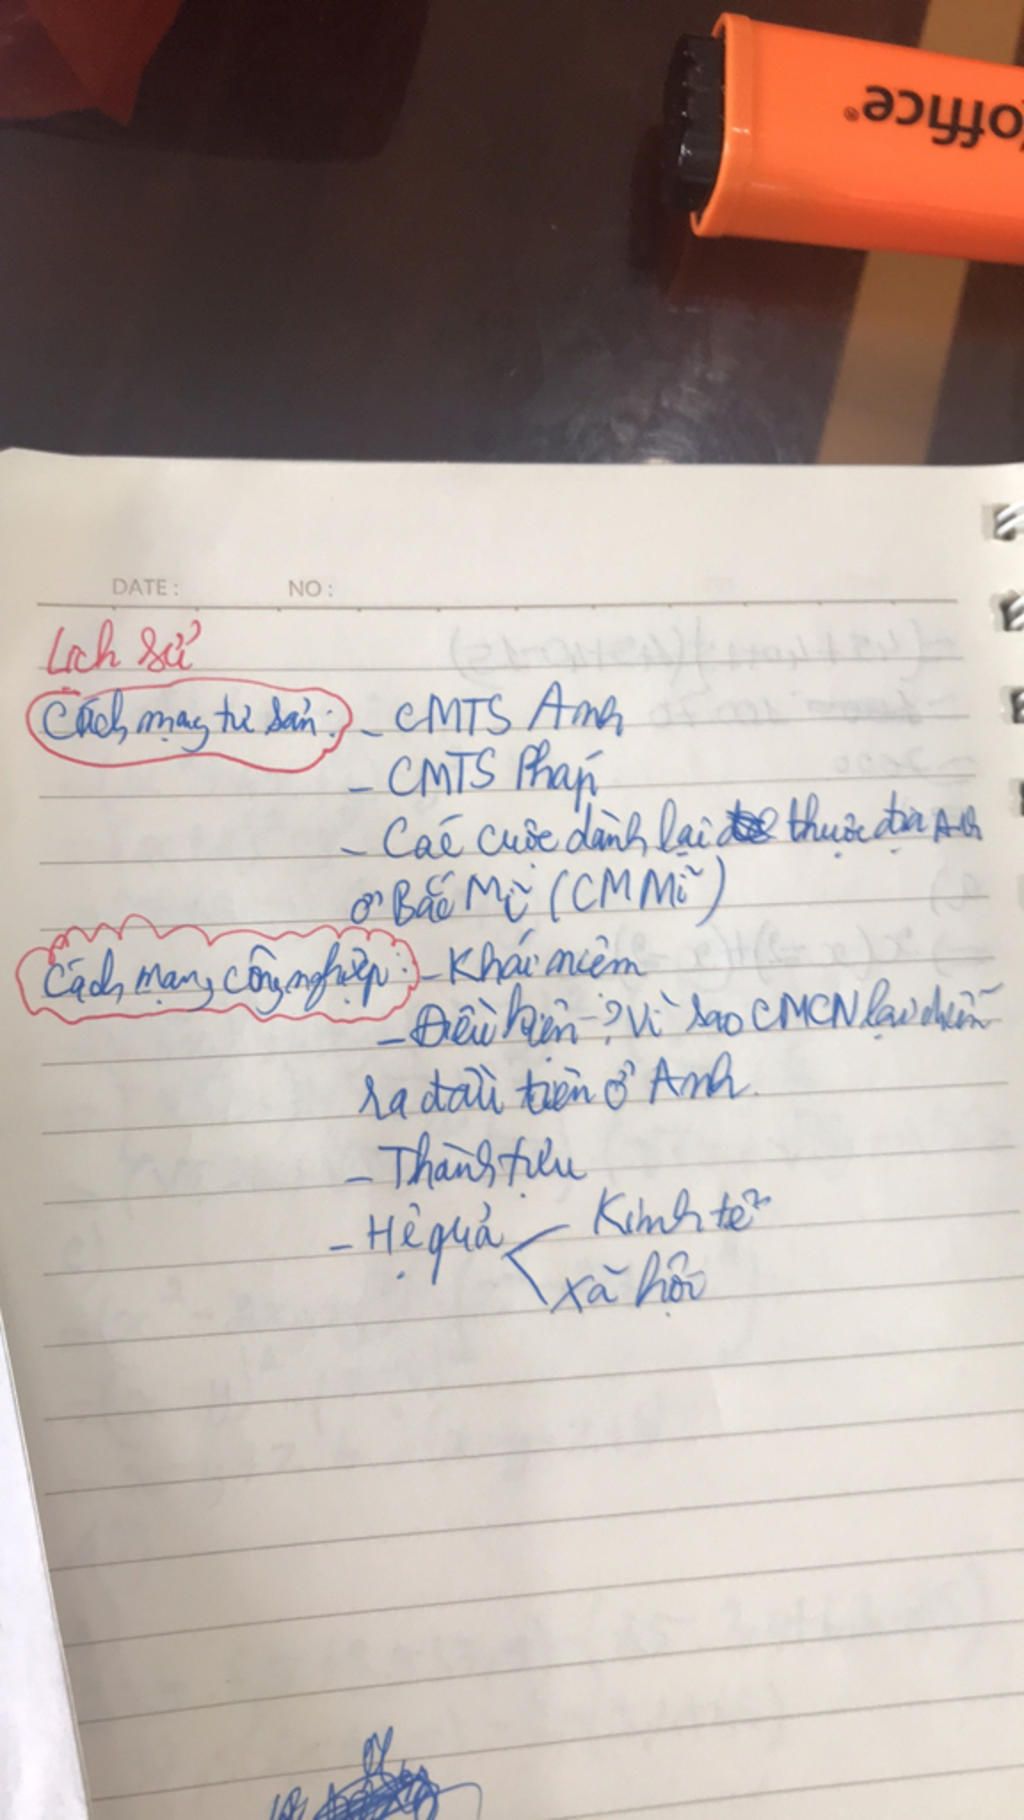 office®
DATE : NO :
Lịch sử
Cách mạng tư sản: - CMTS Anh
- CMTS Pháp
- Các cuộc dành lại thuộc địa Anh
ở Bắc Mĩ (CM Mĩ)
Cách mạng công nghiệp: - Khái niệm
- Điều kiện -? Vì sao CMCN lại diễn
ra đầu tiên ở Anh.
- Thành tựu
- Hệ quả Kinh tế
Xã hội